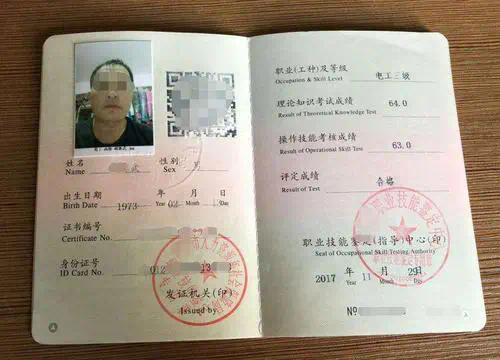 姓名
Name
性别 男
Sex
出生日期 1973 年 02 月 日
Birth Date Year Month Day
证书编号
Certificate No.
身份证号 012 13
ID Card No.
发证机关(印)
Issued by
职业(工种)及等级 电工三级
Occupation & Skill Level
理论知识考试成绩 64.0
Result of Theoretical Knowledge Test
操作技能考核成绩 63.0
Result of Operational Skill Test
评定成绩 合格
Result of Test
职业技能鉴定(指导)中心(印)
Seal of Occupational Skill Testing Authority
2017 年 11 月 29 日
Year Month Day
No